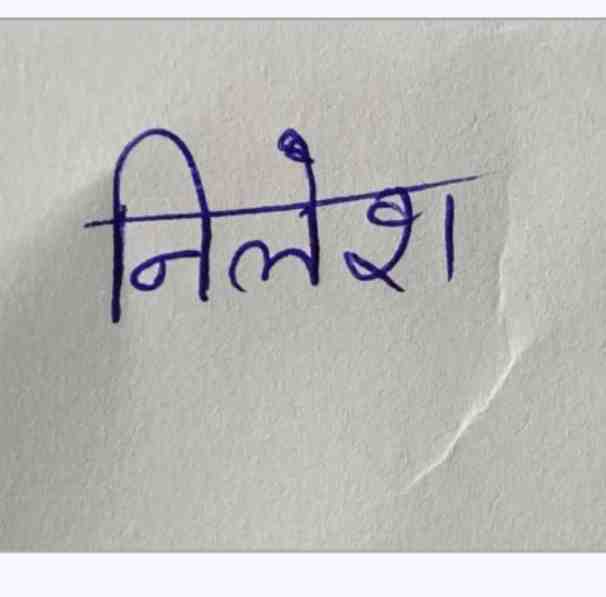 निलेश